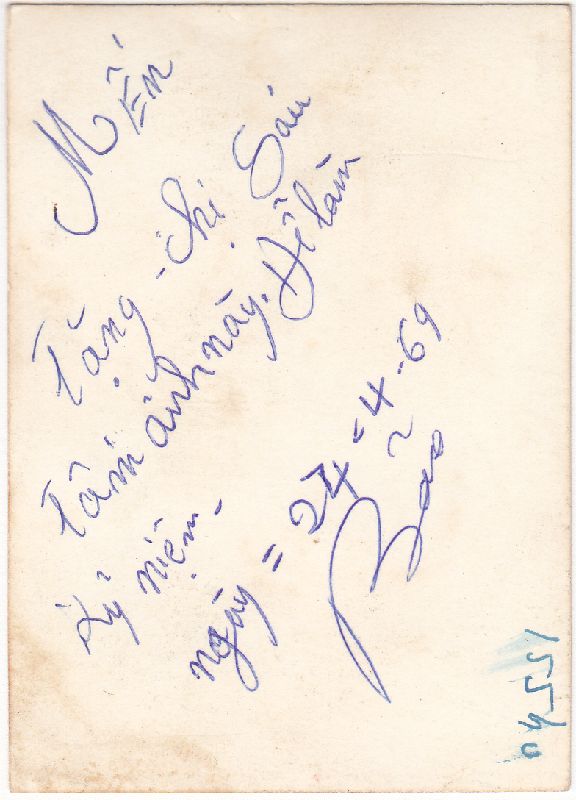 MẾN
Tặng chị Sáu
tấm ảnh này. Để làm
kỷ niệm -
ngày = 24 - 4 - 69
Bảo